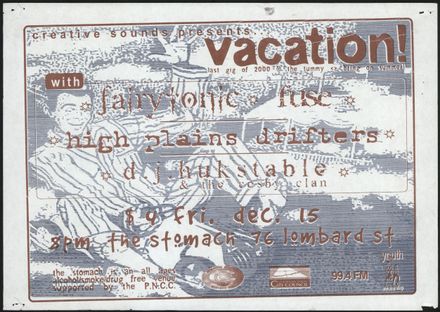 creative sounds presents...
vacation!
last gig of 2000
with
fairytonic * fuse
high plains drifters
d.j. hukstable
& the cosby clan
$4 fri. dec. 15
8pm the stomach 76 lombard st
the stomach is an all ages
alcohol/smoke/drug free venue
supported by the P.N.C.C.
CITY COUNCIL
99.4 FM
youth